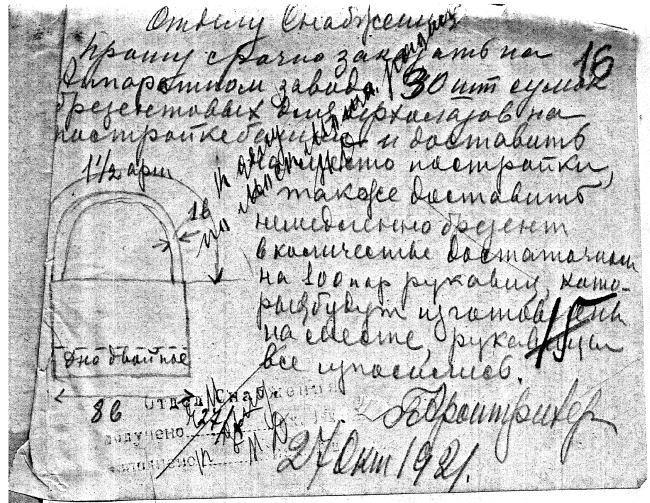 Отделу Снабжения
Прошу срочно заказать на
Аппаратном заводе 30 шт сумок
брезентовых для верхолазов на
постройке башни и доставить
на место постройки,
также доставить
немедленно брезент
в количестве достаточном
на 100 пар рукавиц, кото-
рые будут изготовлены
на месте, рукавицы
все износились.
27 Окт 1921.
16
15
1 1/2 арш
16
Дно двойное
8 в
Отдел Снабжения
Получено